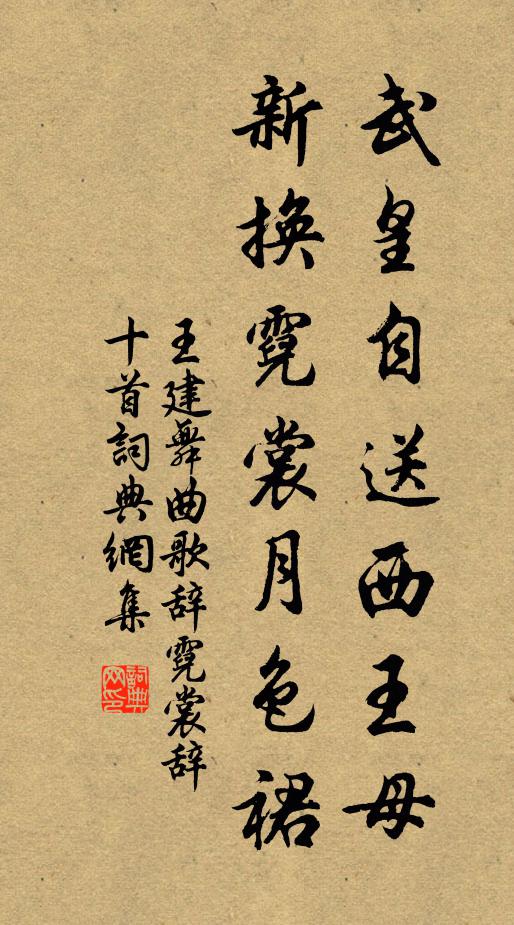 武皇自送西王母
新換霓裳月色裙
王建舞曲歌辞霓裳辞
十首詞典網集
詞典
网印